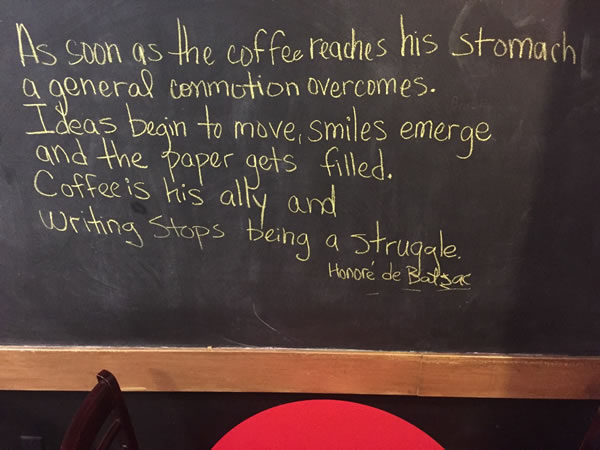 As soon as the coffee reaches his stomach
a general commotion overcomes.
Ideas begin to move, smiles emerge
and the paper gets filled.
Coffee is his ally and
writing stops being a struggle.
Honoré de Balzac